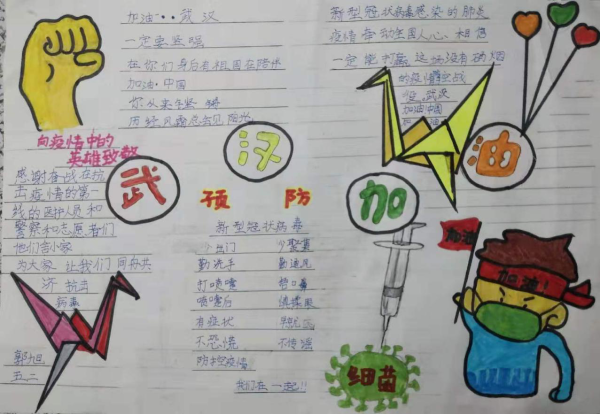 加油··武汉
一定要坚强
在你们身后有祖国在陪伴
加油·中国
你从来坚强
历经风霜总会见阳光
新型冠状病毒感染的肺炎
疫情牵动全国人心 相信
一定能打赢这场没有硝烟
的疫情之战
加油中国
向疫情中的
英雄致敬
感谢奋战在抗
击疫情的第一
线的医护人员和
警察和志愿者们
他们舍小家
为大家 让我们同舟共
济 抗击
郭旭
五二
武
汉
加
油
预 防
新型冠状病毒
少出门 少聚集
勤洗手 勤通风
打喷嚏
喷嚏后
有症状
不恐慌 不传谣
防控疫情
我们在一起!!
细菌
加油
加油!